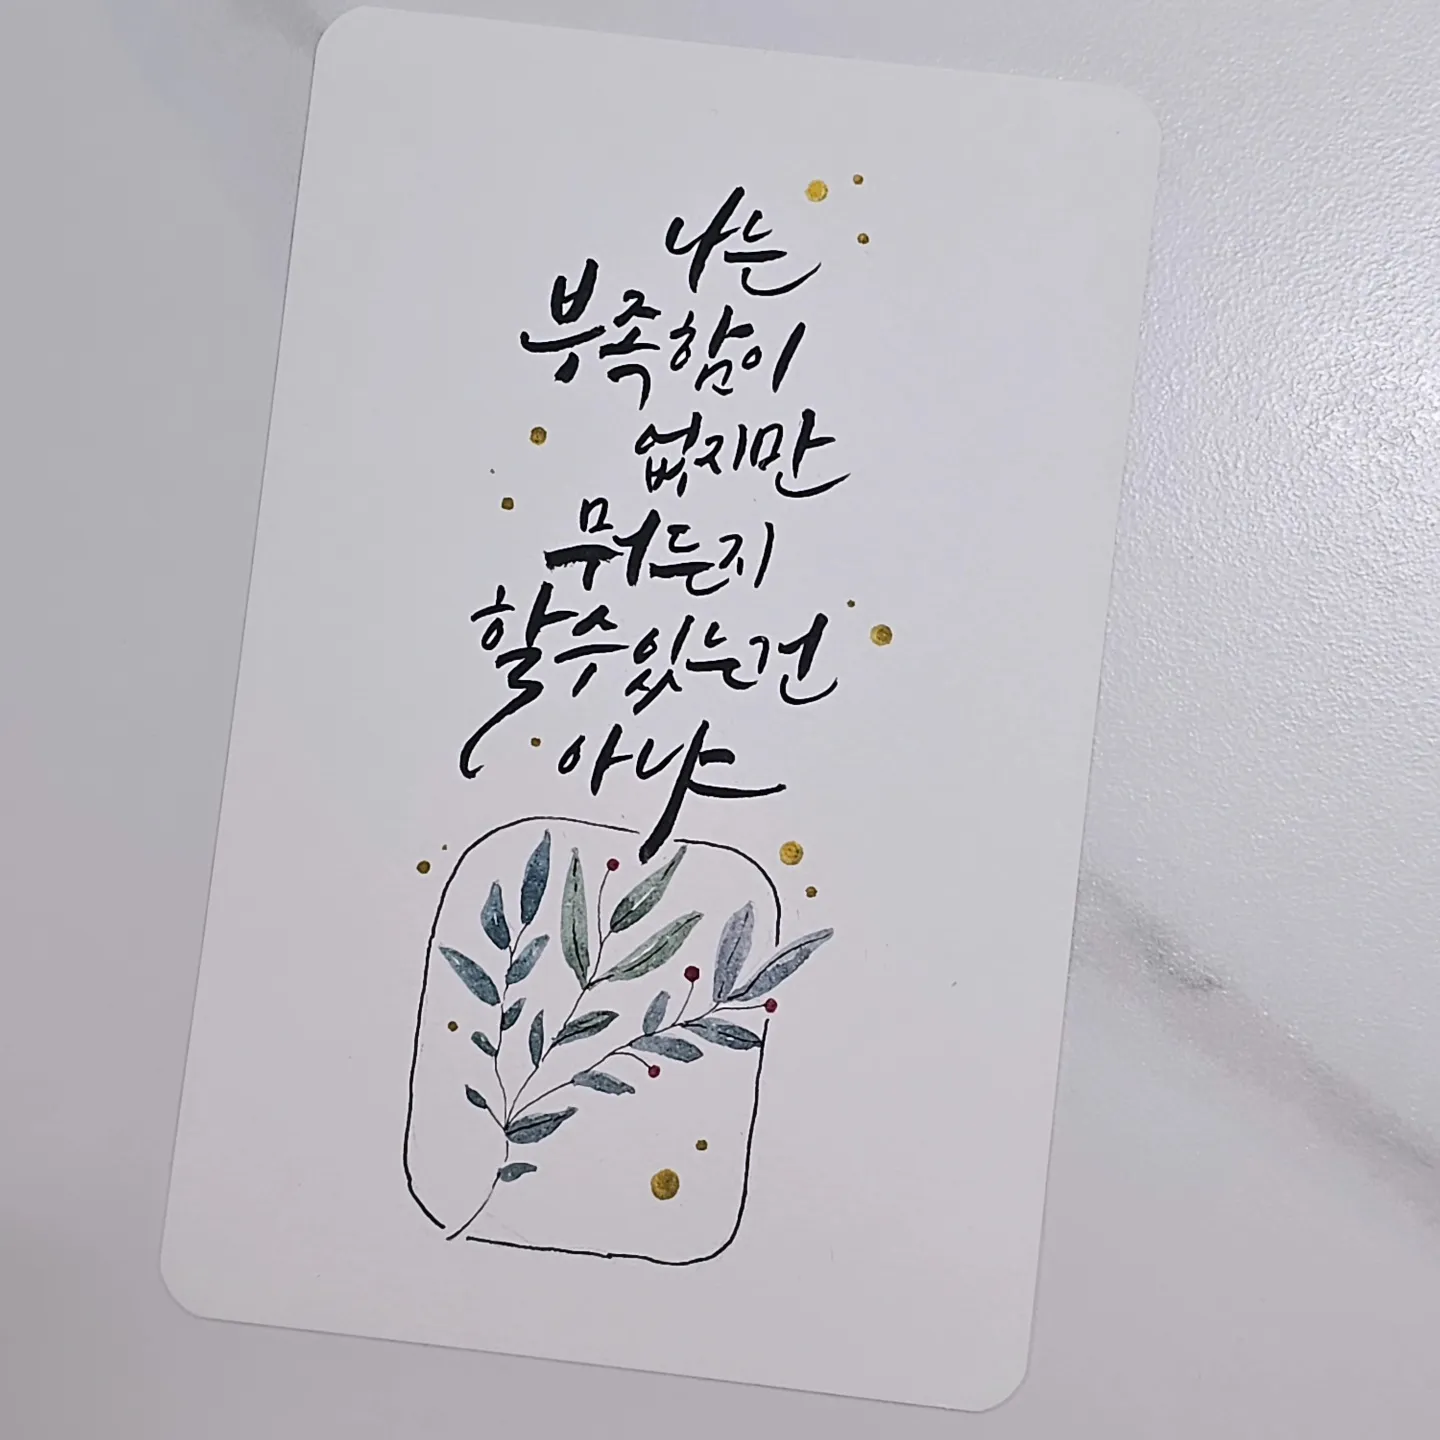 나는
부족함이
없지만
뭐든지
할수있는건
아냐